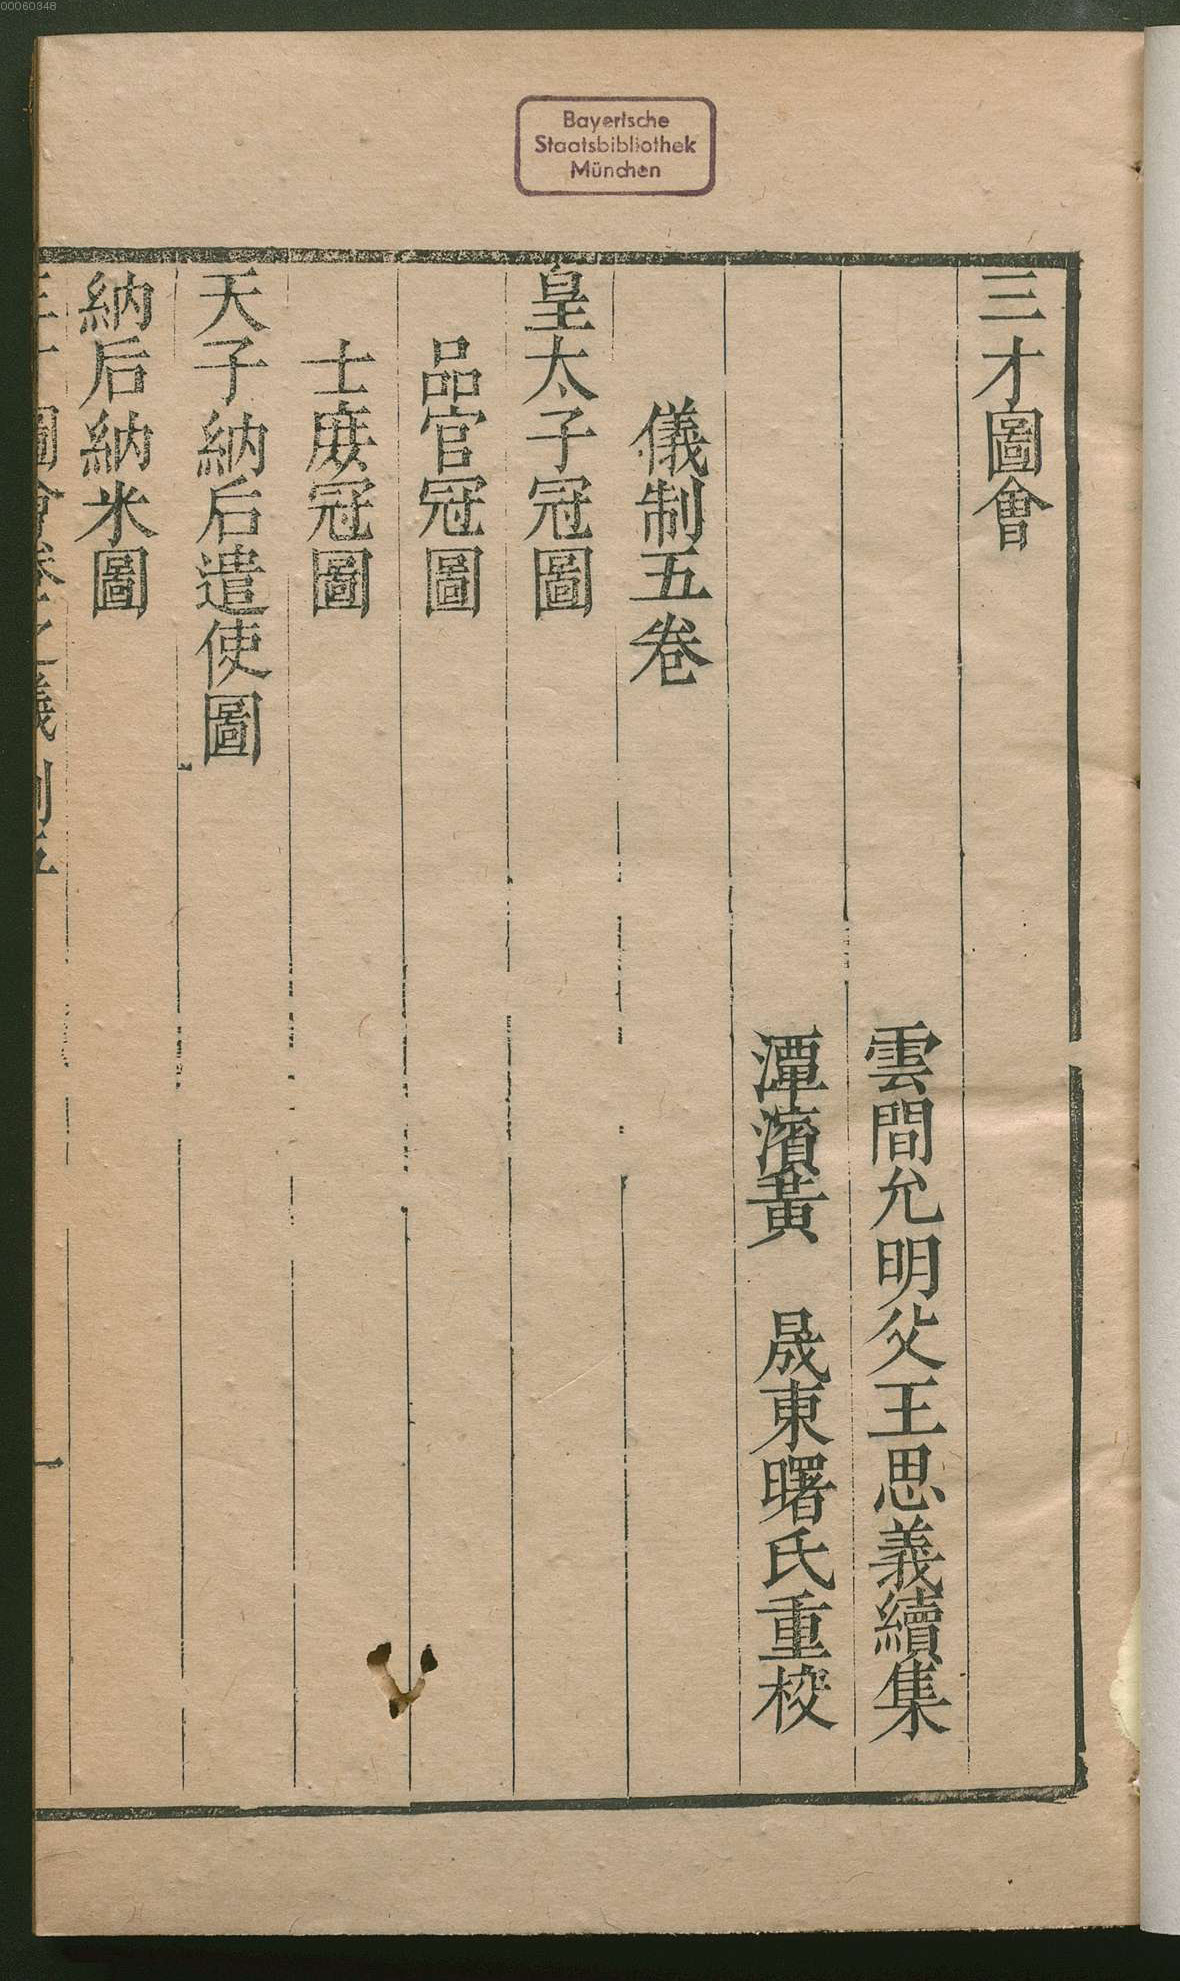 00060348
Bayerische
Staatsbibliothek
München
三才圖會
雲間允明父王思義續集
潭濱黃　晟東曙氏重校
儀制五卷
皇太子冠圖
品官冠圖
士庶冠圖
天子納后遣使圖
納后納米圖
三才圖會卷之儀制五
一